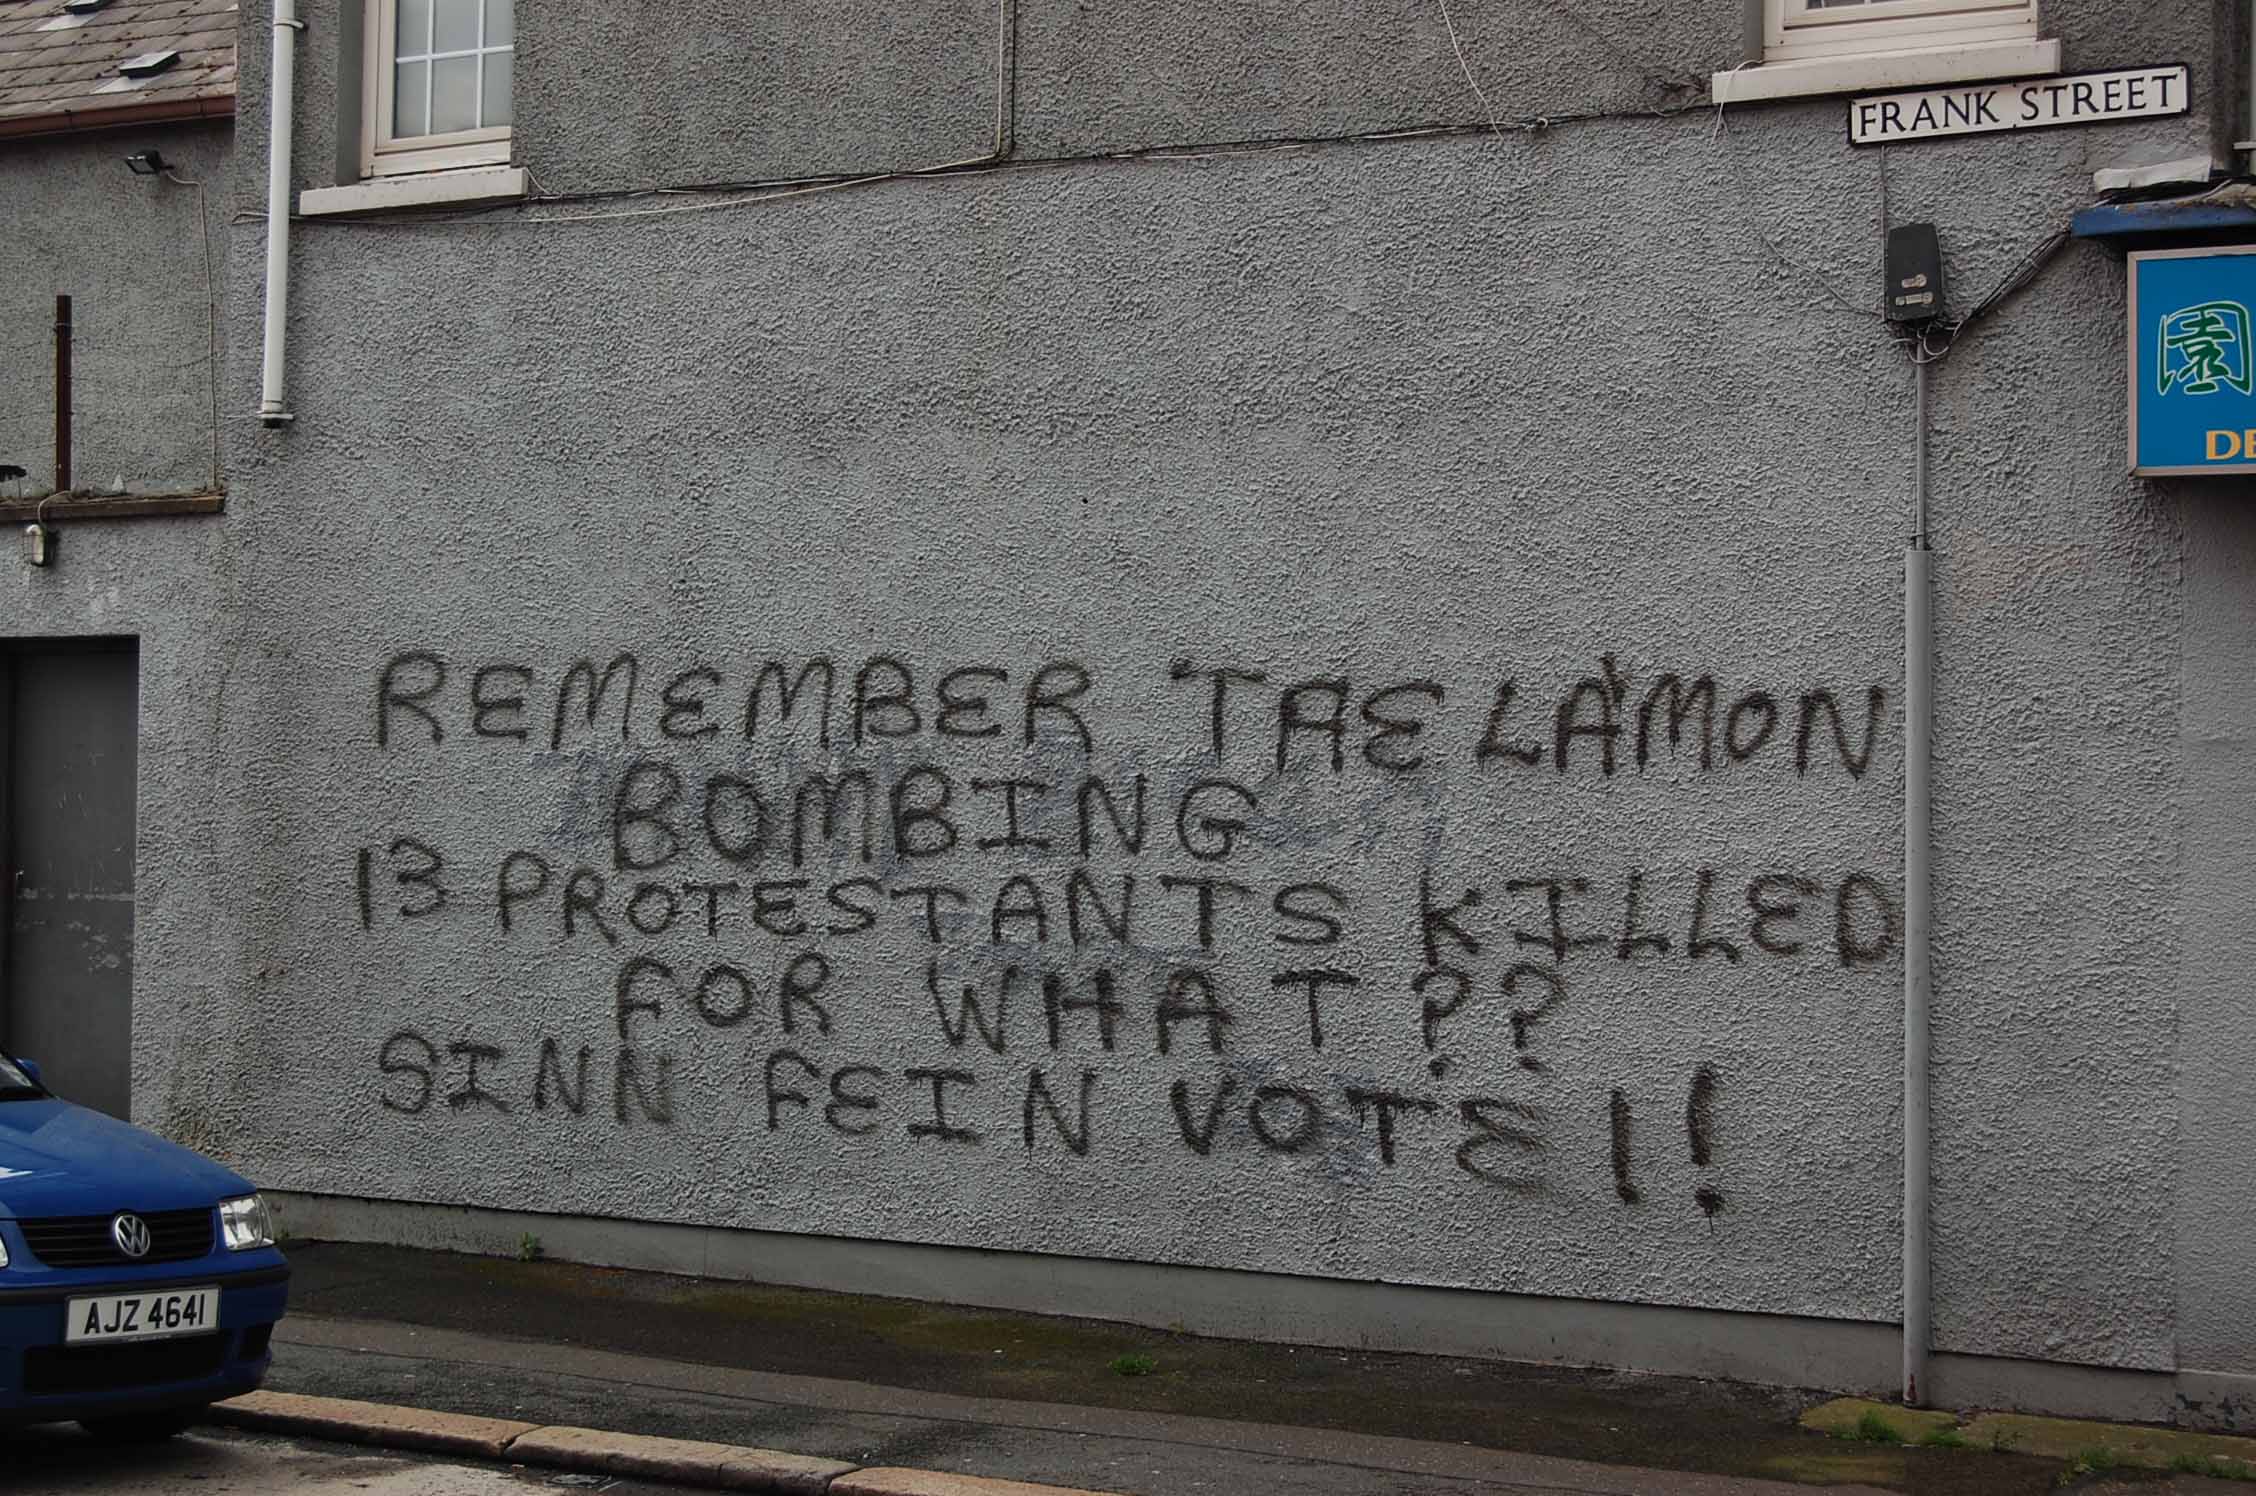 FRANK STREET
園
DE
REMEMBER TAE LA'MON
BOMBING
13 PROTESTANTS KILLED
FOR WHAT??
SINN FEIN VOTE!!
AJZ 4641